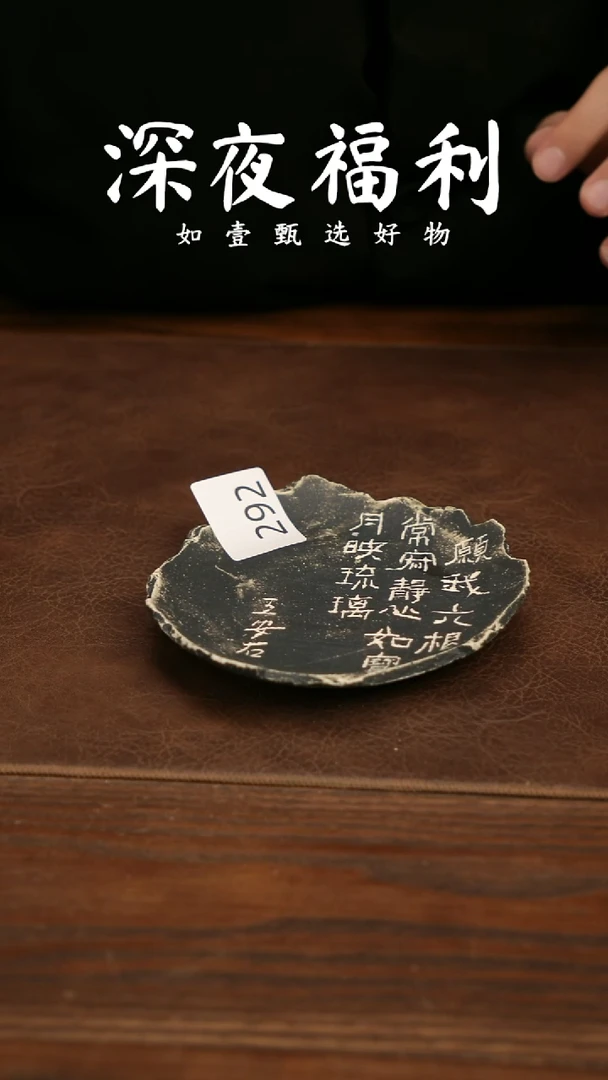 深夜福利
如壹甄选好物
292
願我六根
常寂静心如寶
月映琉璃
王安石